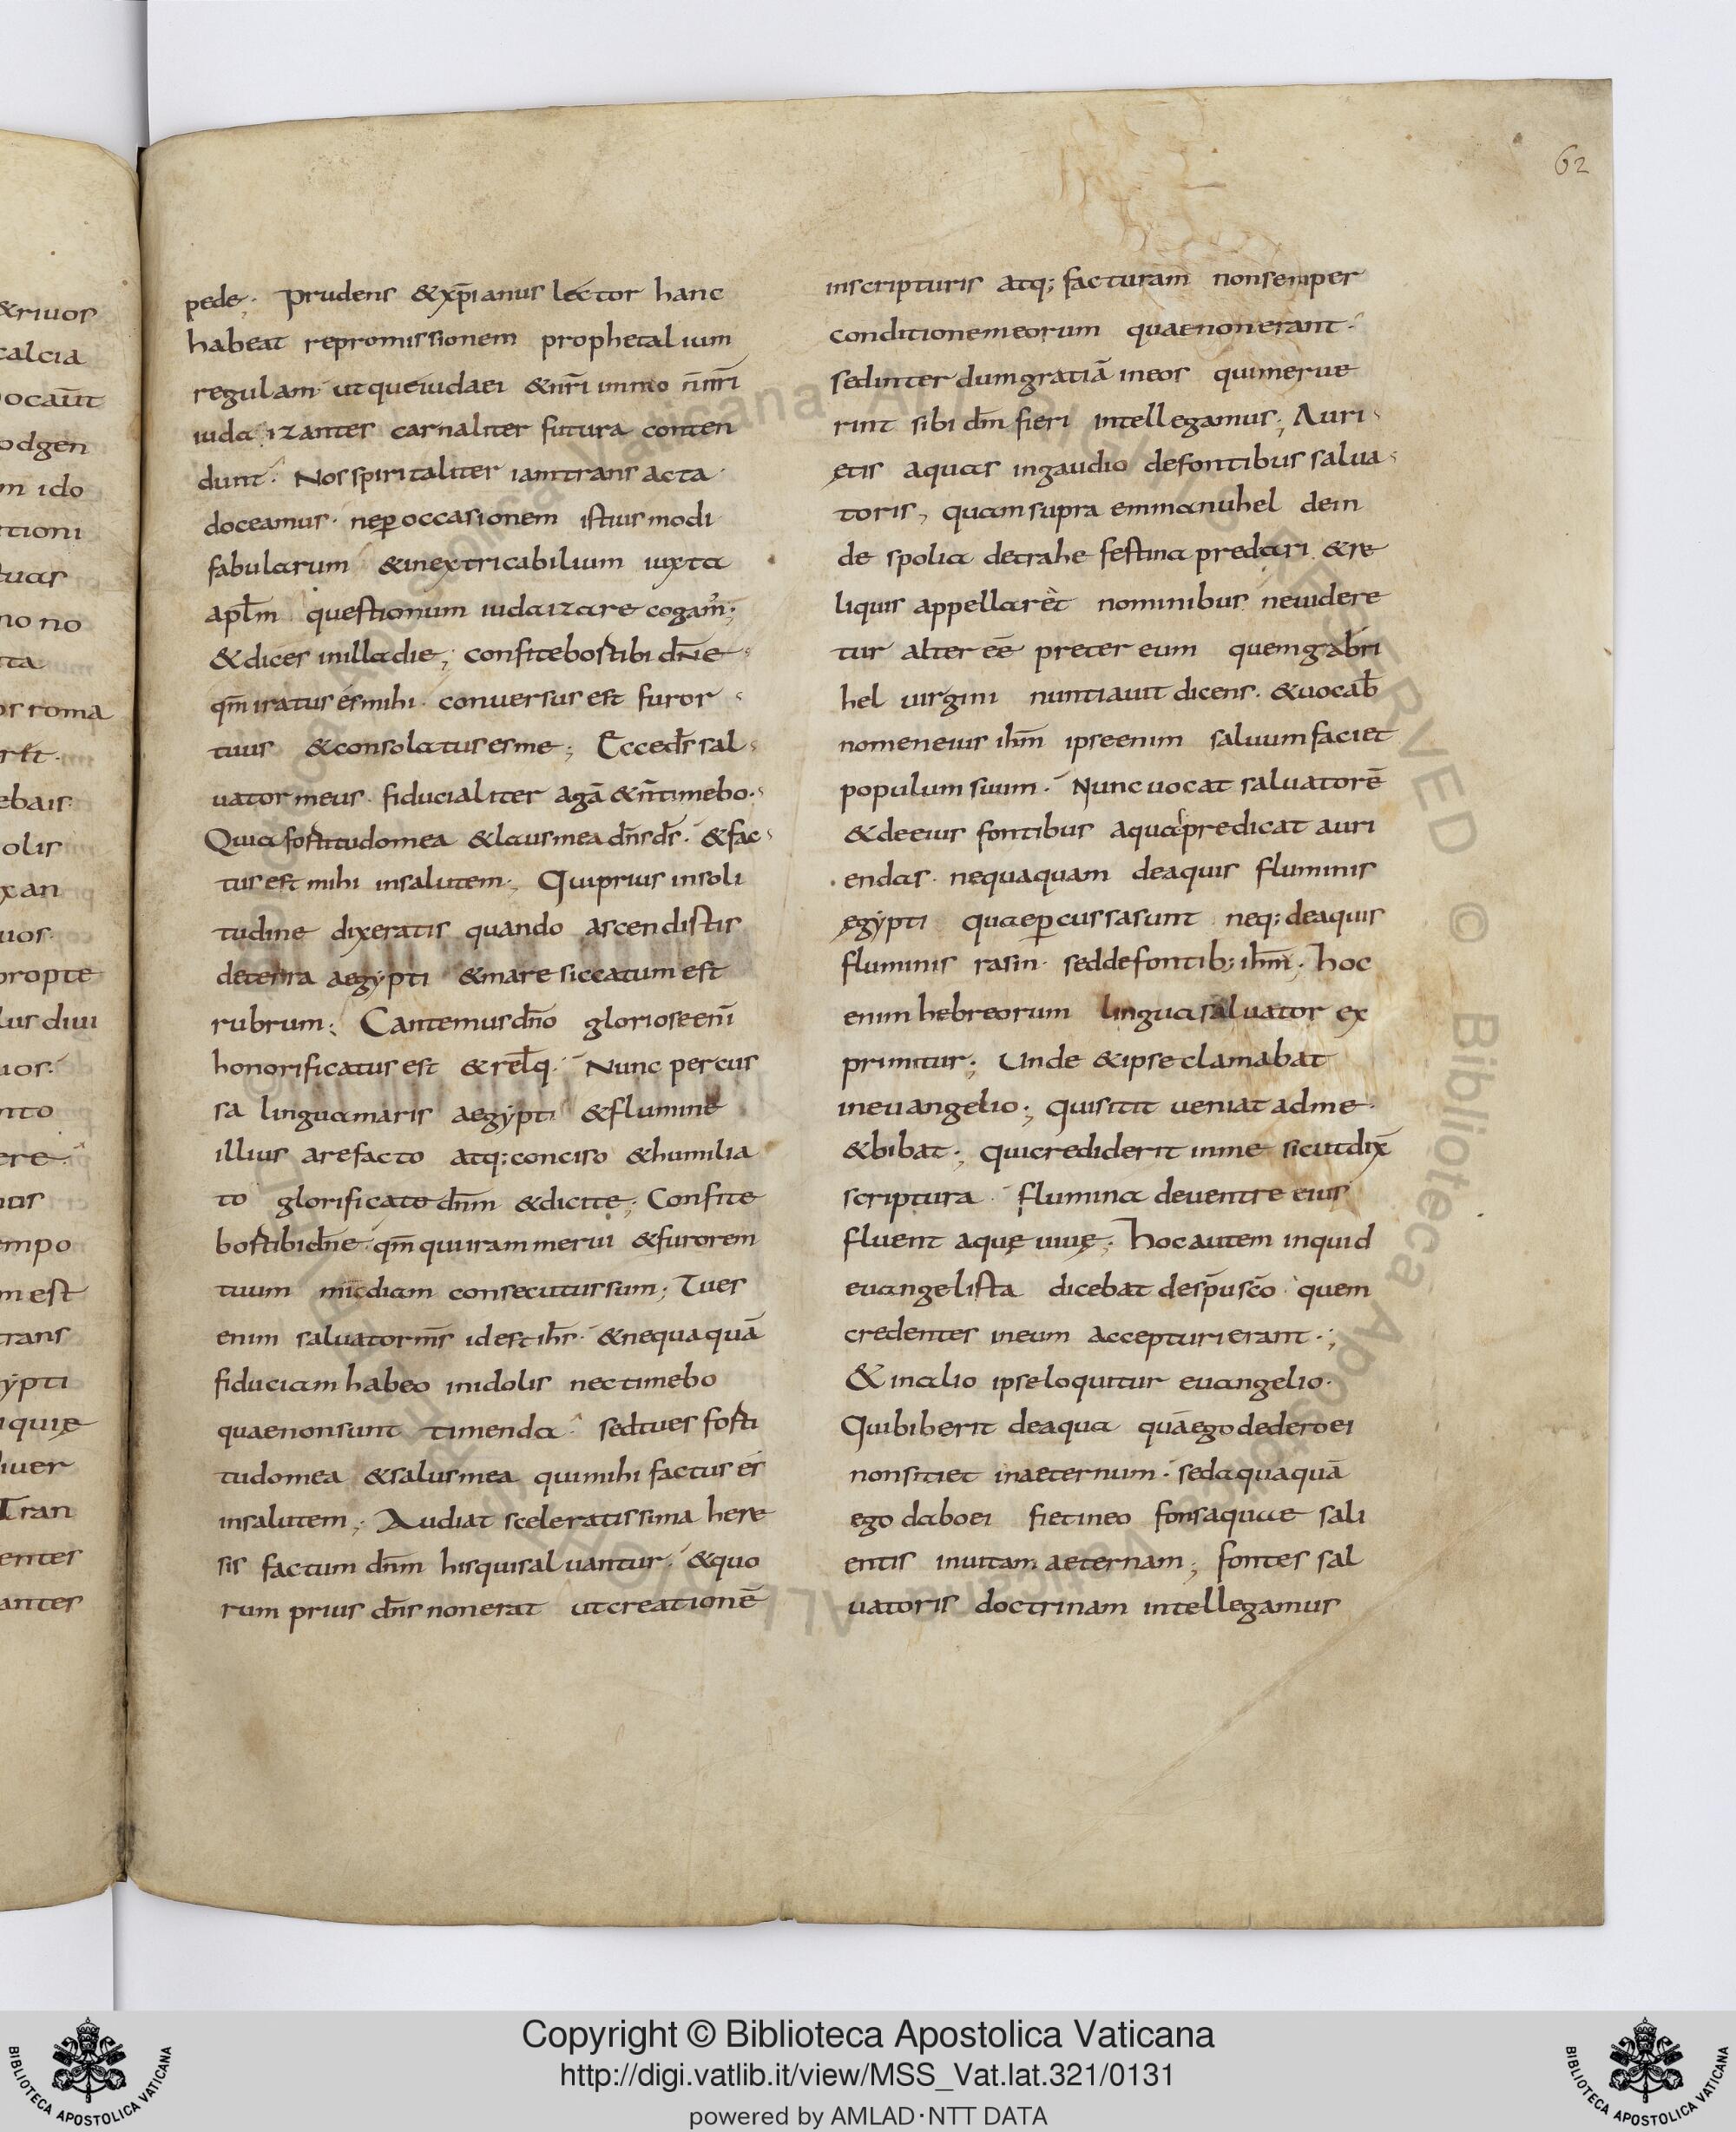 62
pede; Prudens &xp̄ianus lector hanc
habeat repromissionem prophetalium
regulam· ut que iudaei &nr̄i immo n̄nr̄i
iudaizantes carnaliter futura conten
dunt· Nos spiritaliter iam transacta·
doceamus· neꝑ occasionem istius modi
fabularum &inextricabilium iuxta
apłm questionum iudaizare cogam᷒;
&dices in illa die; confitebor tibi dn̄e
qm̄ iratus es mihi· conversus est furor
tuus &consolatus es me; Ecce ds̄ sal
uator meus· fiducialiter agā &n̄ timebo·
Quia fortitudo mea &laus mea dn̄s ds̄· &fac
tus est mihi in salutem; Qui prius in soli
tudine dixeratis quando ascendistis
de terra aegypti &mare siccatum est
rubrum; Cantemus dn̄o gloriose eni̅
honorificatus est &rełq· Nunc percus
sa lingua maris aegypti &flumine
illius arefacto atq; conciso &humilia
to glorificate dn̄m &dicite; Confite
bor tibi dn̄e· qm̄ qui iram merui &furorem
tuum mīcdiam consecutus sum; Tu es
enim saluator ms̄ id est ih̄s· &nequaquā
fiduciam habeo in idolis nec timebo
quae non sunt timenda· sed tu es forti
tudo mea &salus mea qui mihi factus es
in salutem; Audiat sceleratissima here
sis factum dn̄m his qui saluantur· &quo
rum prius dn̄s non erat ut creationē
in scripturis atq; facturam non semper
conditionem eorum quae non erant·
sed interdum gratiā in eos qui merue
rint sibi dm̄ fieri intellegamus; Auri
etis aquas in gaudio de fontibus salua
toris, quam supra emmanuhel dein
de spolia detrahe festina predari &re
liquis appellaret nominibus ne uidere
tur alter eē preter eum quem gabri
hel uirgini nuntiauit dicens· &uocab̄
nomen eius ih̄m ipse enim saluum faciet
populum suum· Nunc uocat saluatorē
&de eius fontibus aquas predicat auri
endas· nequaquam de aquis fluminis
ęgypti quae ꝑcussa sunt neq; de aquis
fluminis rasin· sed de fontib; ih̄m· hoc
enim hebreorum lingua saluator ex
primitur; Unde &ipse clamabat
in euangelio; qui sitit ueniat ad me·
&bibat; qui crediderit in me sicut dix̄
scriptura· flumina de uentre eius
fluent aquę uiuę; hoc autem inquid
euangelista dicebat de sp̄u sc̄o quem
credentes in eum accepturi erant·;
& in alio ipse loquitur euangelio·
Qui biberit de aqua quā ego dedero ei
non sitiet in aeternum· sed aqua quā
ego dabo ei fiet in eo fons aquae sali
entis in uitam aeternam; fontes sal
uatoris doctrinam intellegamus
Copyright © Biblioteca Apostolica Vaticana
http://digi.vatlib.it/view/MSS_Vat.lat.321/0131
powered by AMLAD·NTT DATA
BIBLIOTECA APOSTOLICA VATICANA
BIBLIOTECA APOSTOLICA VATICANA